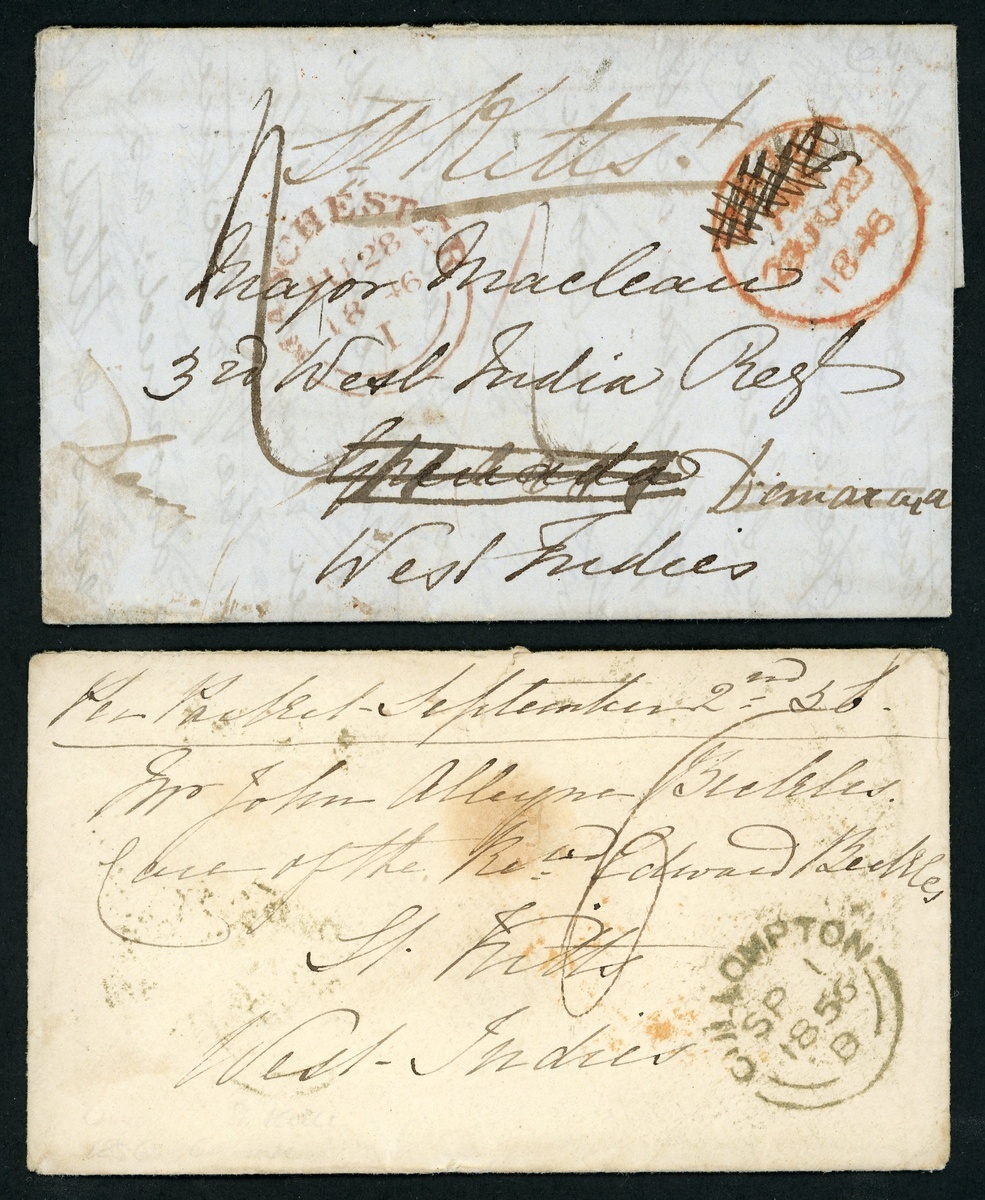 St Kitts!
MANCHESTER
JU 28
1846
I
29 JU 29
1846
Major Maclean
3rd West India Regt
Grenada Demarara
West Indies
Per Packet September 2nd 56.
Mr John Alleyne Beckles.
Care of the Revd Edward Beckles
St. Kitts
West Indies
6
SP 1
1856
B